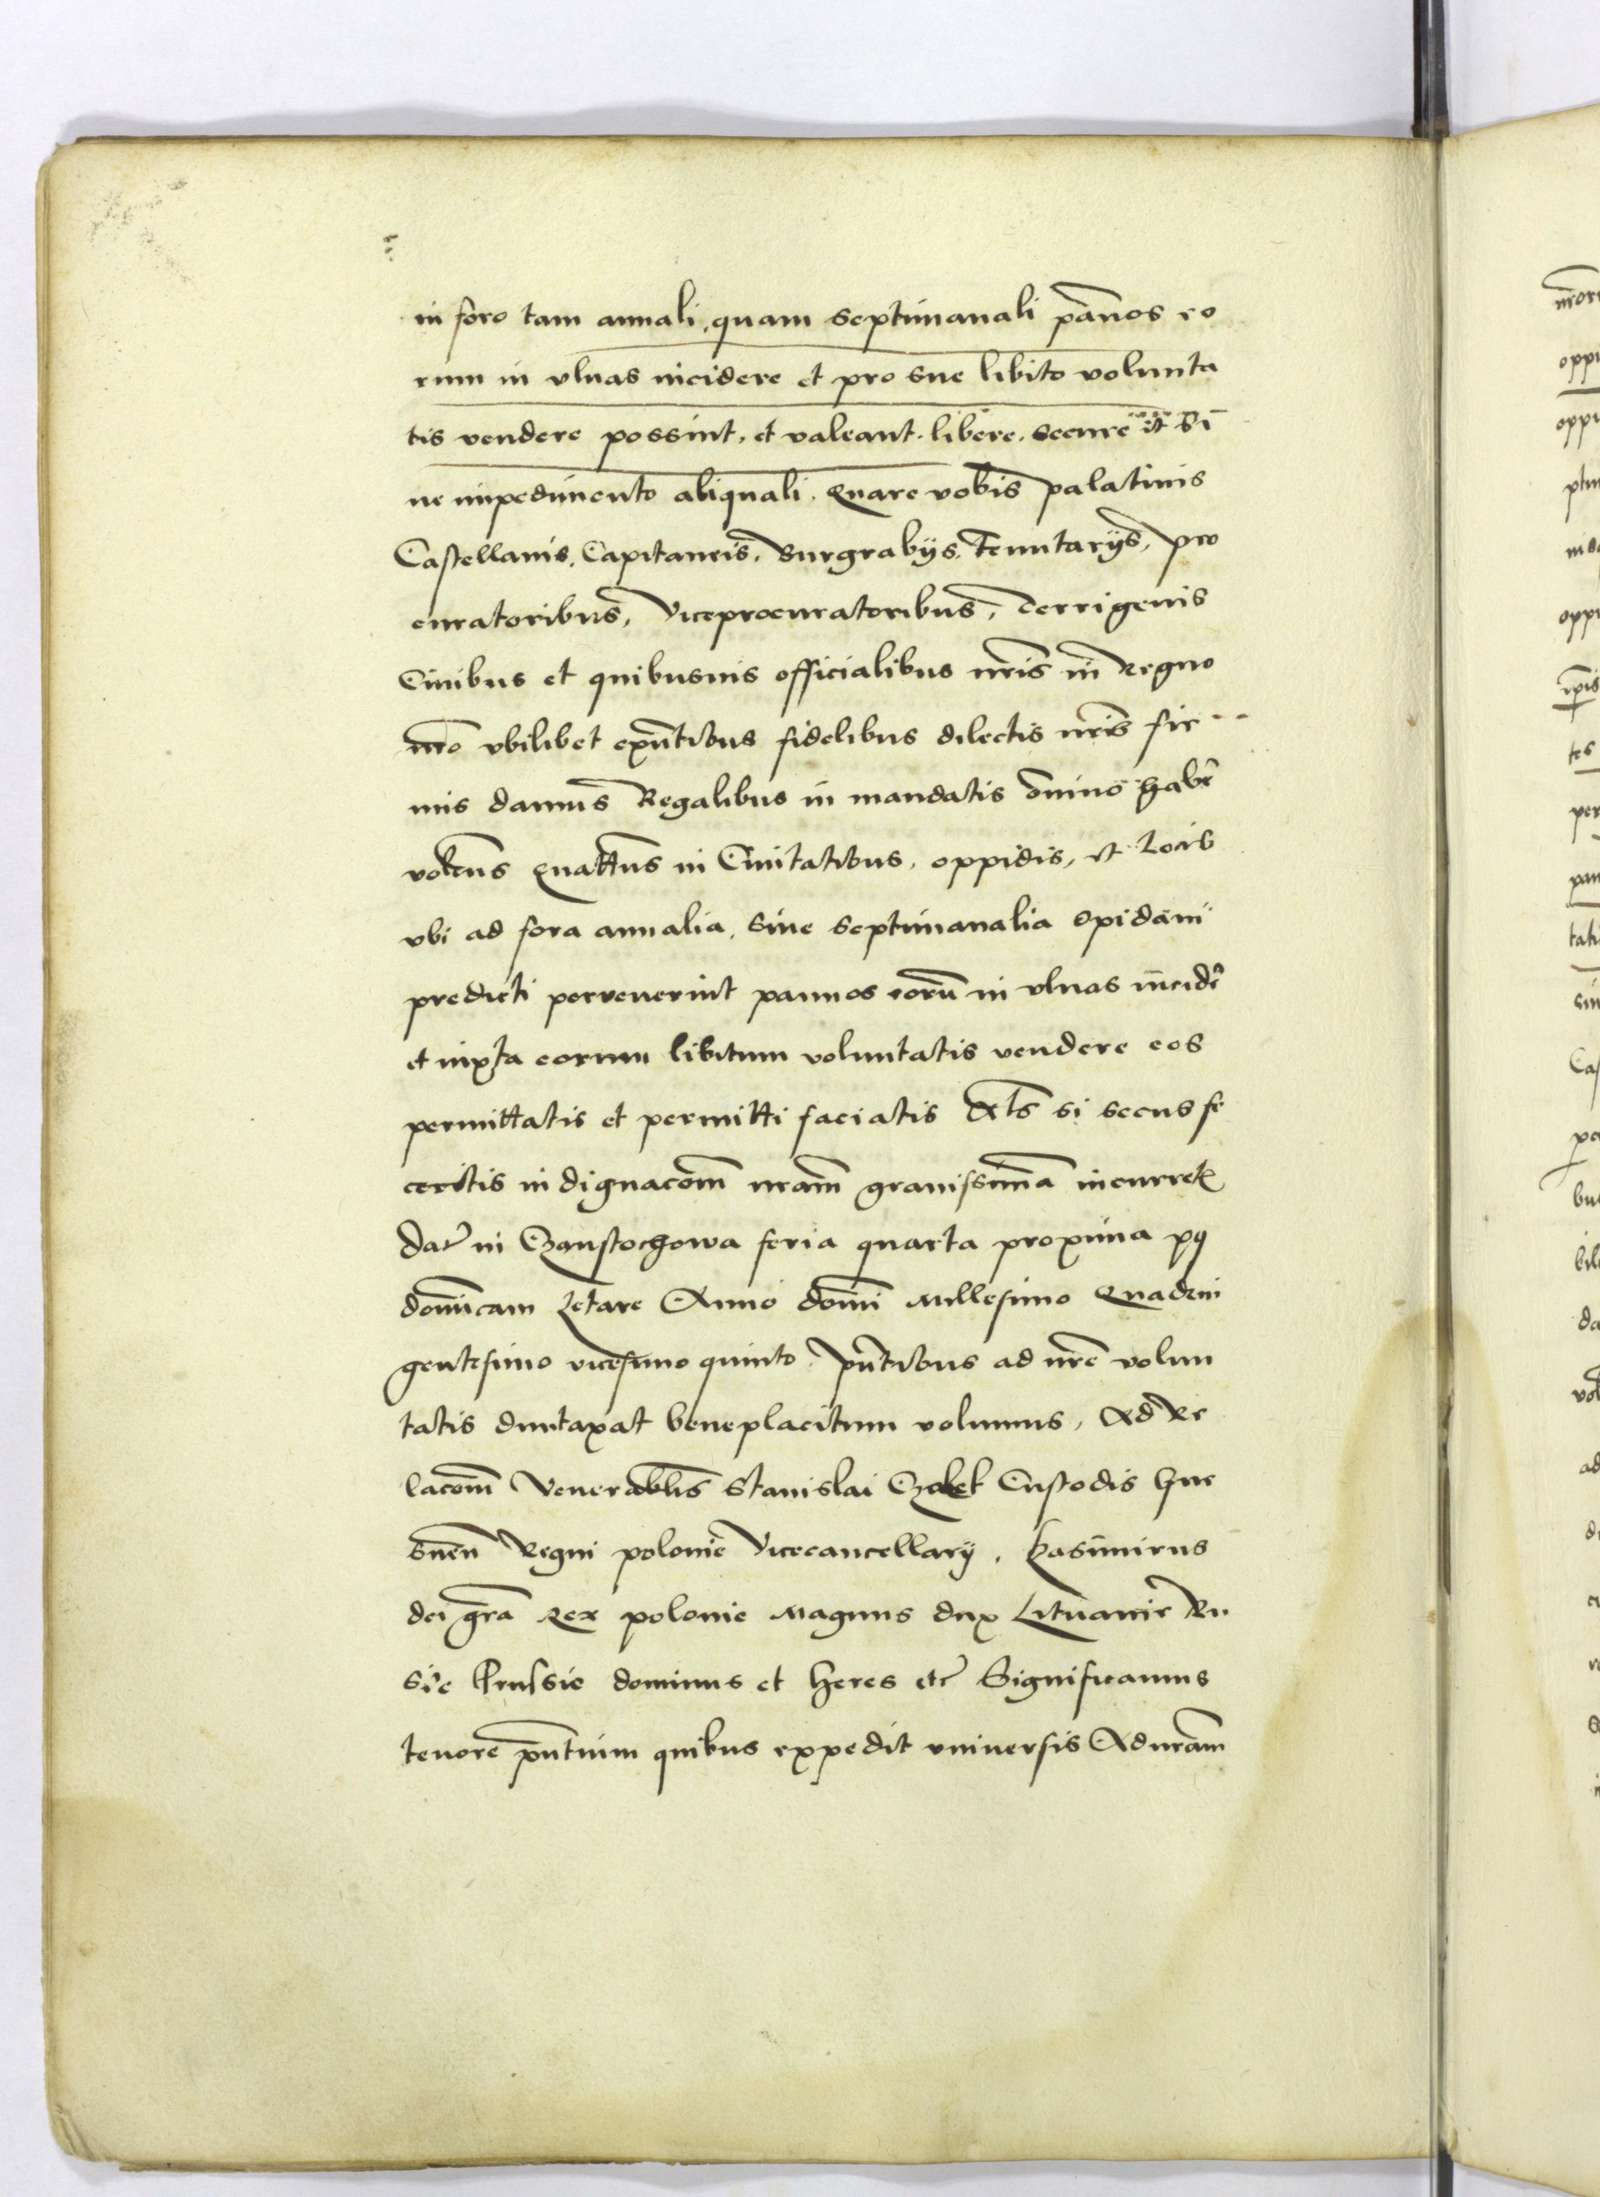 in foro tam annali, quam septimanali pannos eo
rum in vlnas incidere et pro sue libito volunta
tis vendere possint, et valeant. libere. secure et si
ne impedimento aliquali. Quare vobis palatinis
Castellanis. Capitaneis. Burgrabÿs. Tenutarÿs, pro
curatoribus, Viceprocuratoribus, Terrigenis
Ciuibus et quibusuis officialibus nr̄is in Regno
nr̄o vbilibet exn̄tibus fidelibus dilectis nr̄is fir
mis damus Regalibus in mandatis om̄ino habēr
volen̄s Quatt̄us in Ciuitatibus, oppidis, et Locis
vbi ad fora annalia, siue septimanalia opidani
predicti pervenerint pannos eorū in vlnas incider̄
et iuxta eorum libitum voluntatis vendere eos
permittatis et permitti faciatis Al̄s si secus fe
ceritis indignacōm nr̄am grauissimā incurret̄
Dat̄ in Czanstochowa feria quarta proxima p9
domīcam Letare Anno domī Millesimo Quadrin
gentesimo vicesimo quinto. pn̄tibus ad nr̄e volun
tatis duntaxat beneplacitum volumus, Ad Re
lacōm Venerabl̄is Stanislai Czolek Custodis Gne
snen̄ Regni polonie Vicecancellarÿ. Kasimirus
dei gr̄a Rex polonie Magnus dux Lituanie Ru
sie Prussie dominus et heres etc̄ Significamus
tenorē pn̄tium quibus expedit vniuersis Ad nr̄am